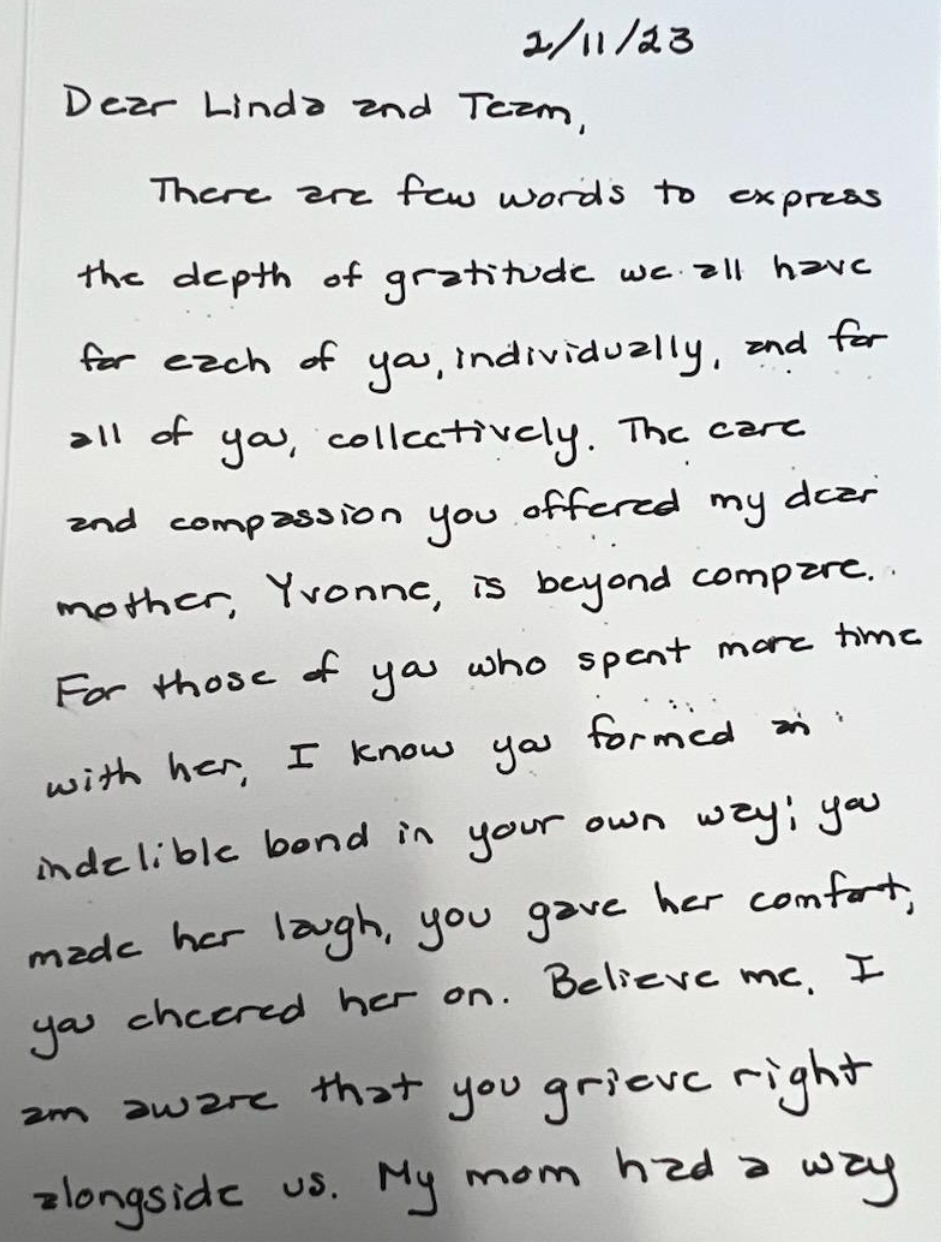 2/11/23
Dear Linda and Team,
There are few words to express
the depth of gratitude we all have
for each of you, individually, and for
all of you, collectively. The care
and compassion you offered my dear
mother, Yvonne, is beyond compare.
For those of you who spent more time
with her, I know you formed an
indelible bond in your own way; you
made her laugh, you gave her comfort,
you cheered her on. Believe me, I
am aware that you grieve right
alongside us. My mom had a way